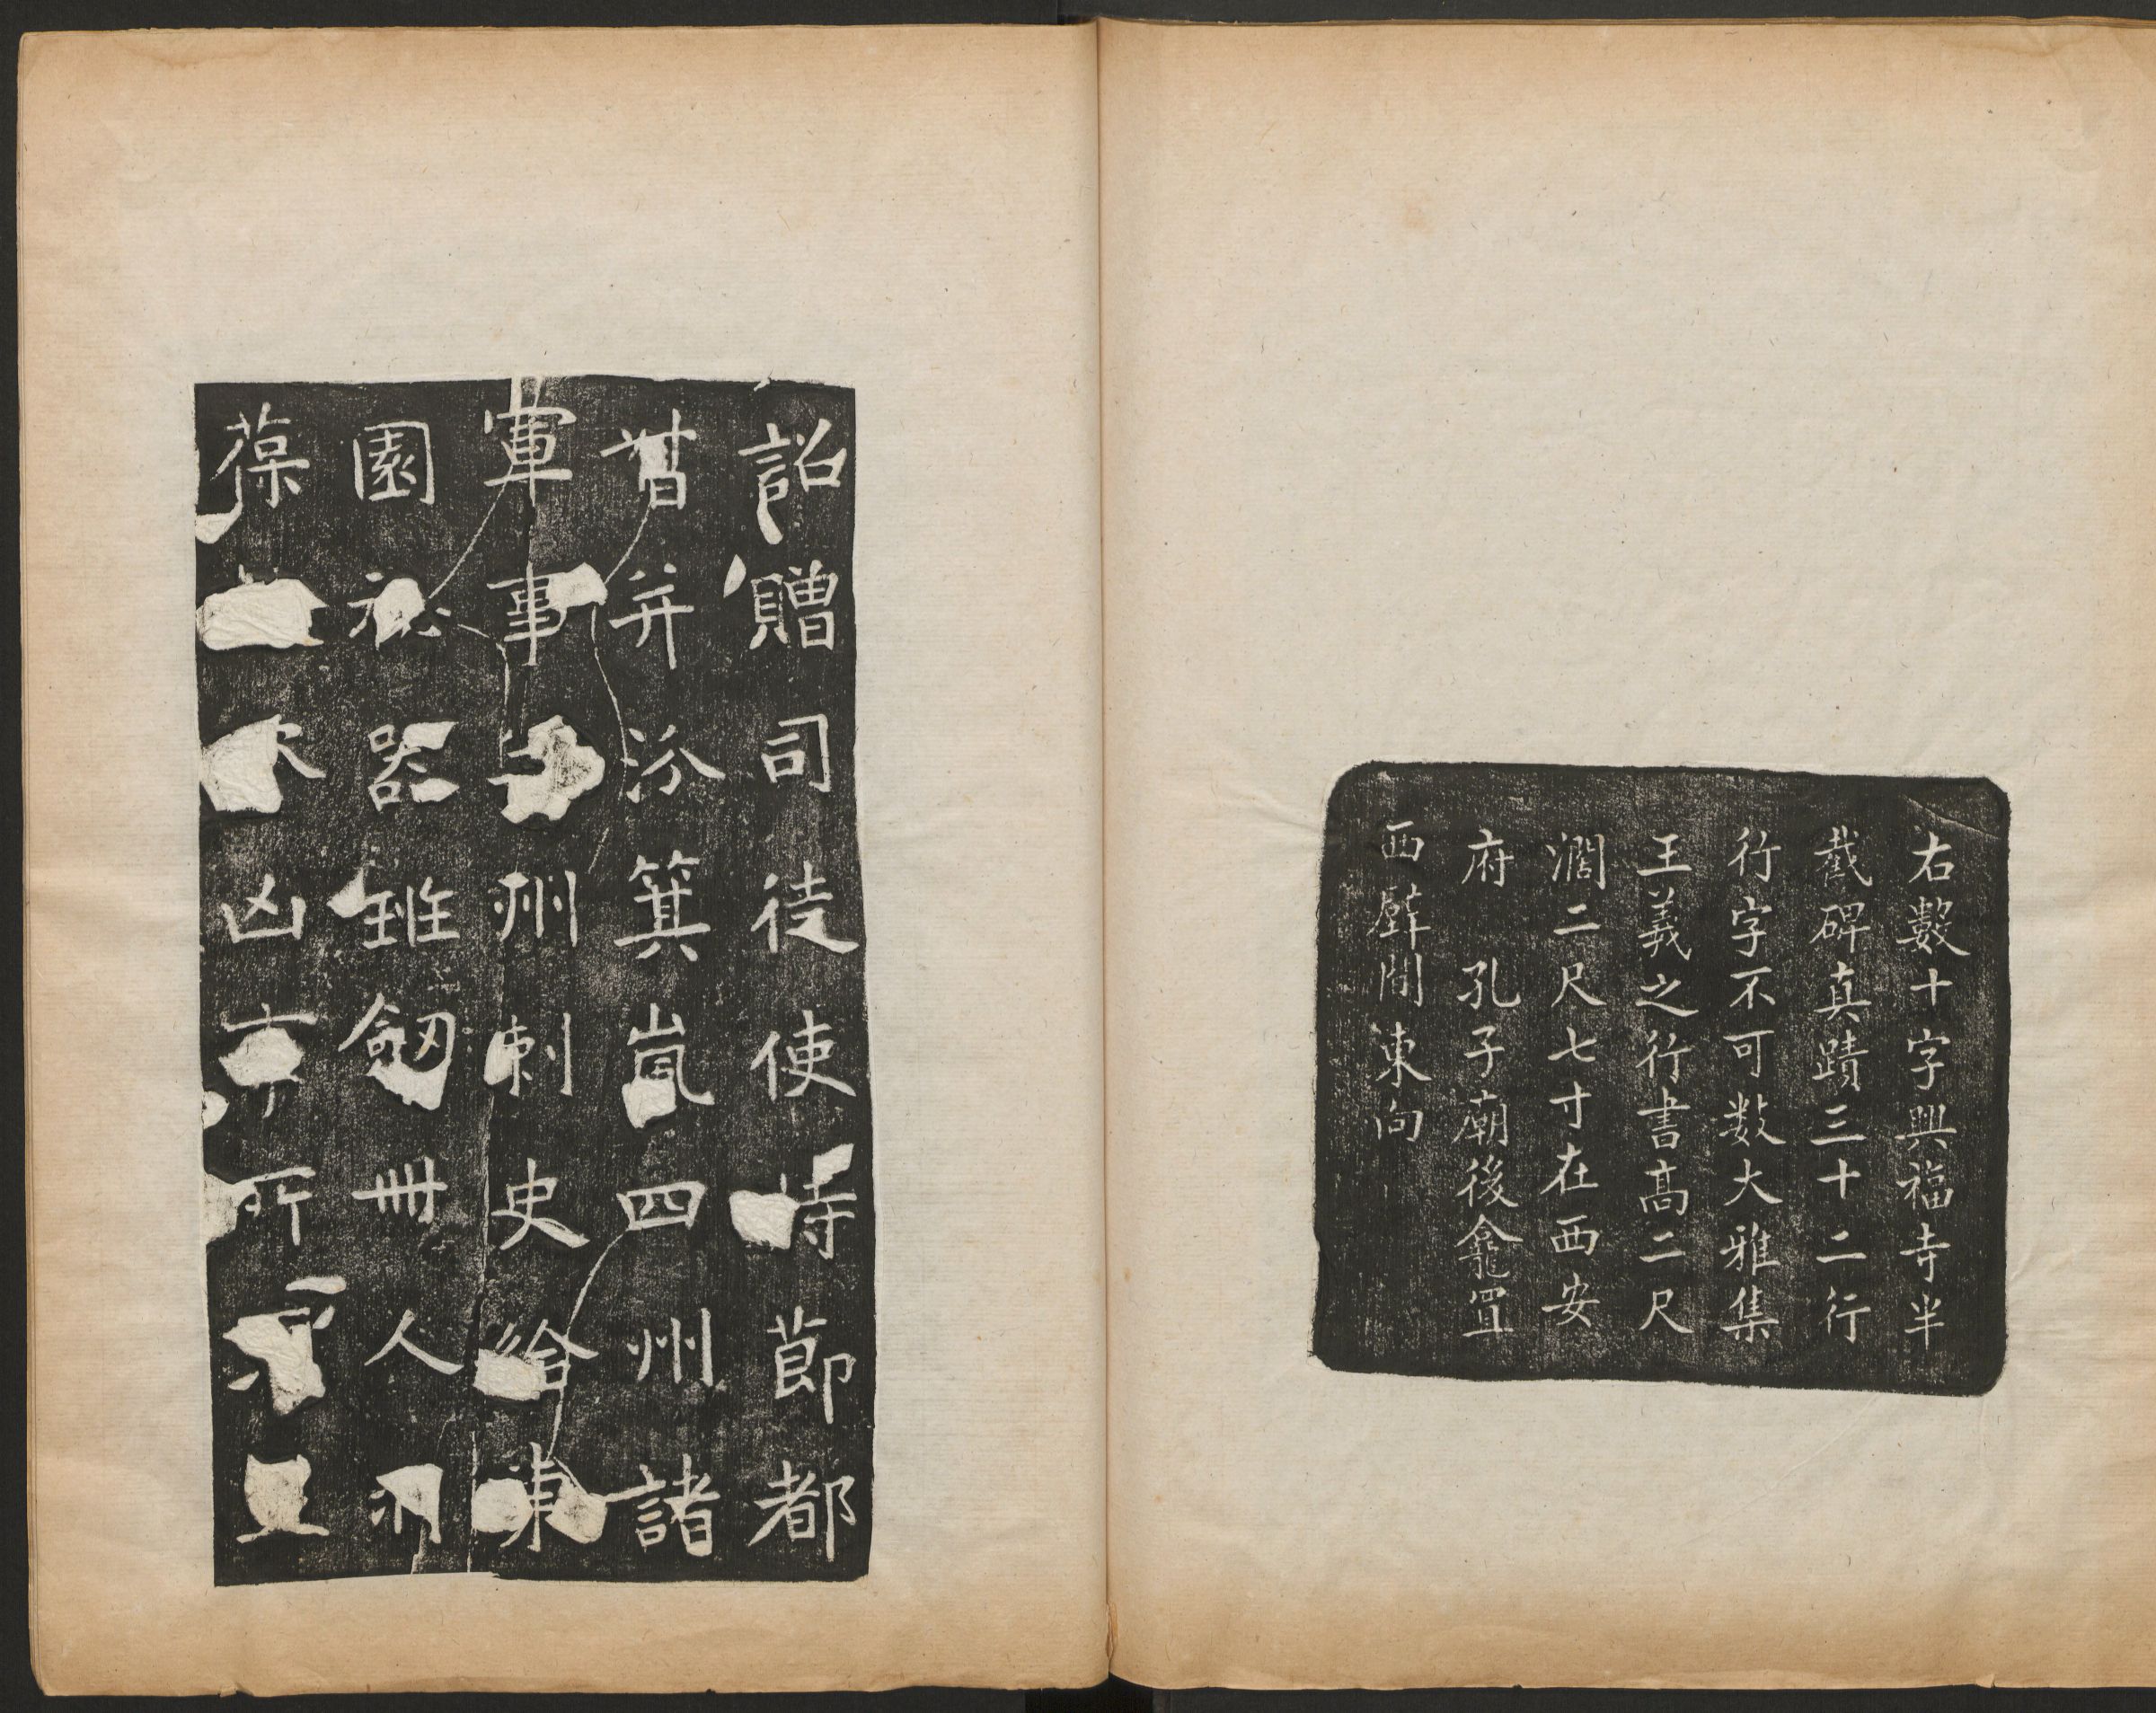 右數十字興福寺半
截碑真蹟三十二行
行字不可数大雅集
王羲之行書高二尺
濶二尺七寸在西安
府 孔子廟後龕置
西壁間東向
詔贈司徒使持莭都
督并汾箕嵐四州諸
軍事并州刺史給東
園秘器雖劒冊人
葆凶所